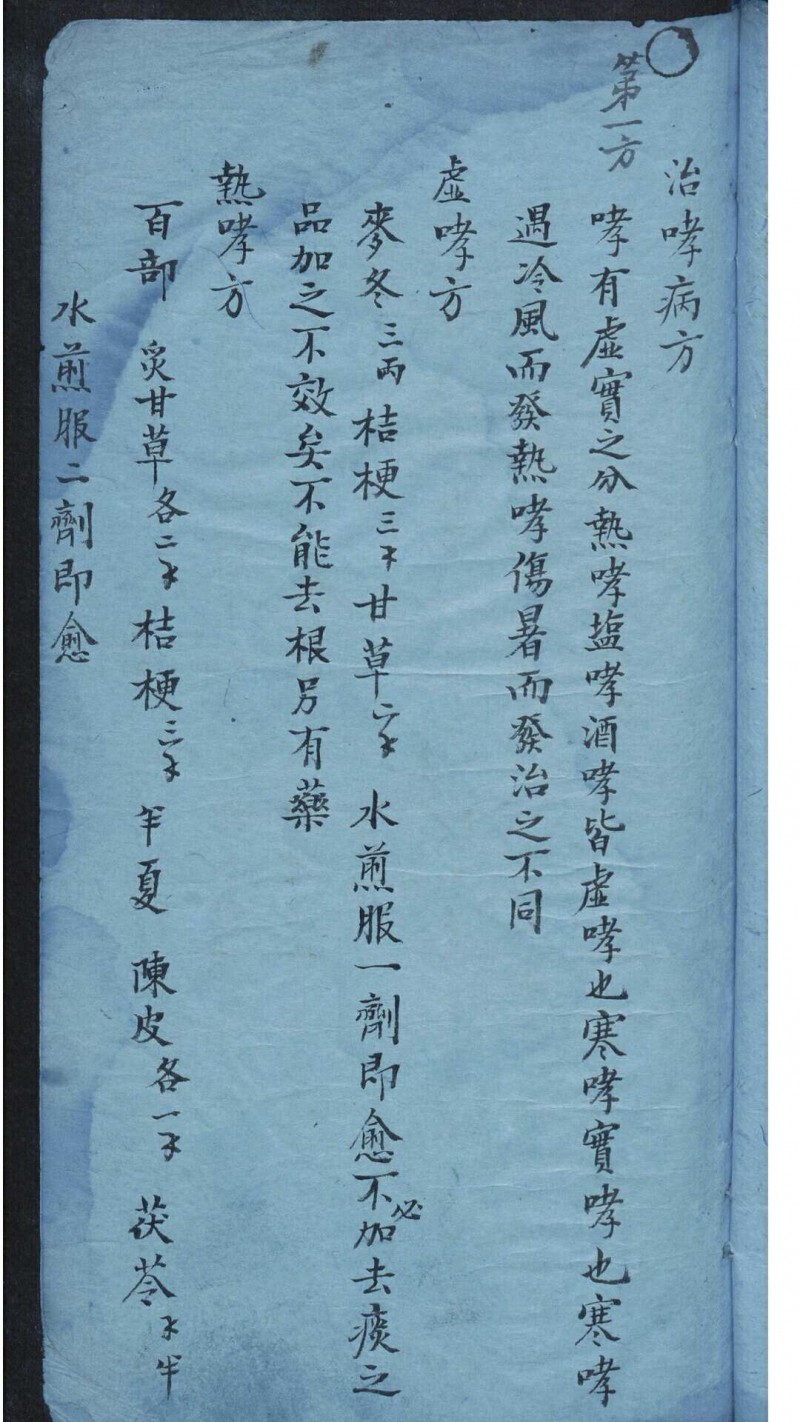 治哮病方
第一方
哮有虛實之分熱哮塩哮酒哮皆虛哮也寒哮實哮也寒哮
遇冷風而發熱哮傷暑而發治之不同
虛哮方
麥冬三両桔梗三不甘草二不水煎服一劑即愈不必加去痰之
品加之不效矣不能去根另有藥
熱哮方
百部 炙甘草各二不桔梗三不半夏 陳皮各一不茯苓不半
水煎服二劑即愈